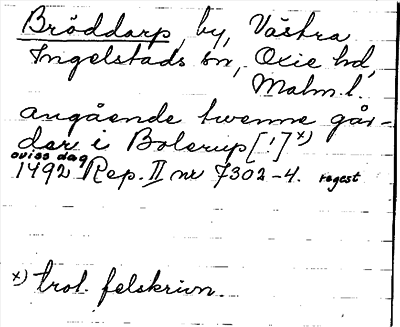 Bröddarp, by, Västra
Ingelstads sn, Oxie hd,
Malm. l.
angående twenne går-
der i Bolerup [!] x)
oviss dag
1492 Rep. II nr 7302-4. regest
x) trol. felskrivn.